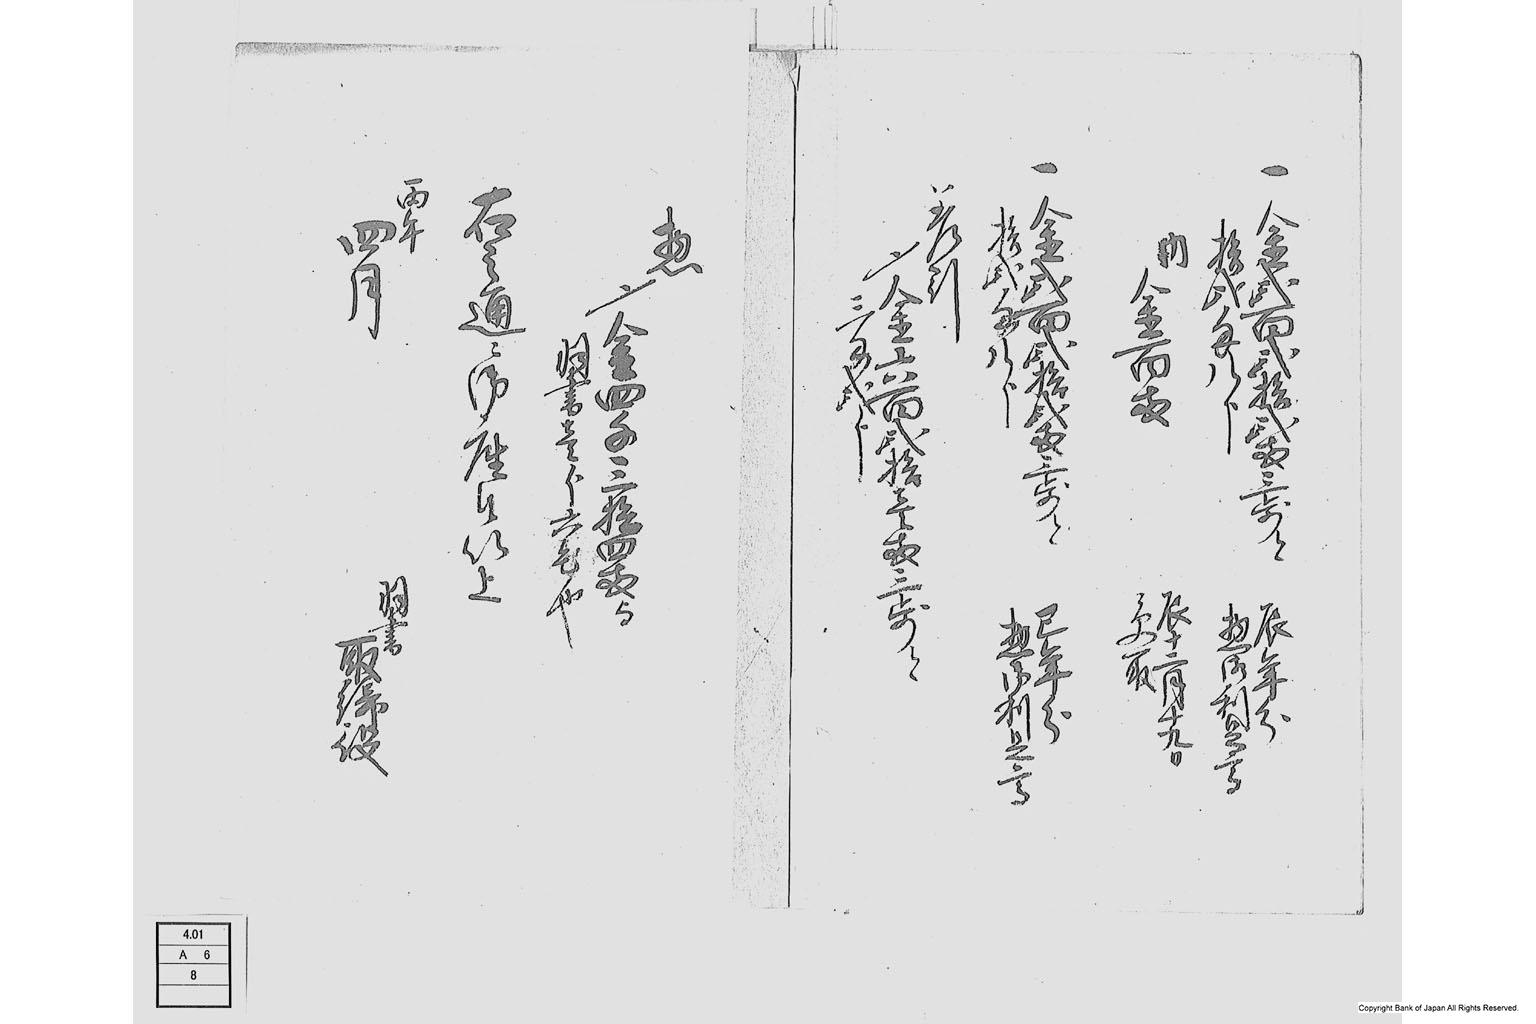 一金弐百弐拾弐両三歩ト
拾弐匁八分
辰年分
惣御利足高
内
金百両
辰十二月十九日
受取
一金弐百弐拾弐両三歩ト
拾弐匁八分
巳年分
惣御利足高
差引
〆金六百弐拾壱両三歩ト
三匁弐分
惣
〆金四千三拾四両ト
羽書壱分六毛也
右之通ニ御座候以上
丙午
四月
羽書
取締役
4.01
A 6
8
Copyright Bank of Japan All Rights Reserved.